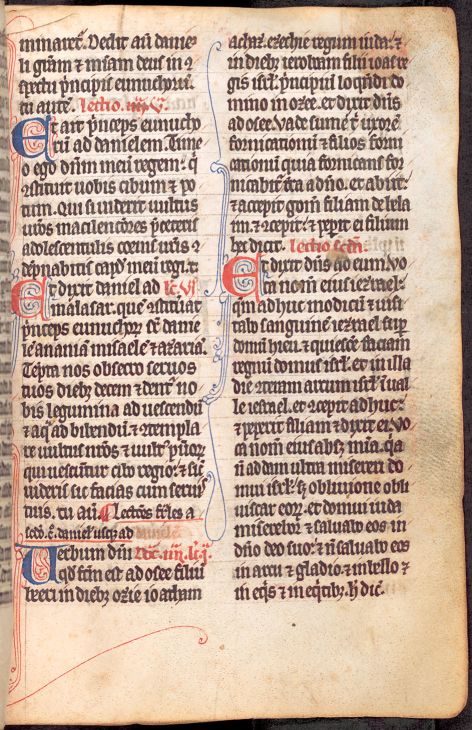 minaret᷑. Dedit aut̄ danie
li gr̄am ⁊ mīam deus in ↄ
spectu p̄ncipis eunuchorū.
tu autē. Lectio
Et ait p̄nceps eunucho
rū ad danielem. Timeo
ego dn̄m meū regem: q̄
ↄstituit uobis cibum ⁊ po
tum. Qui si uiderit uultus
ur̄os macilentiores p̄ ceteris
adolescentulis coeuis ur̄is
ↄdēpnabitis capd̄ meū regi. t.
Et dixit daniel ad lc̄. vi.
malasar. quē ↄstituerat
p̄nceps eunuchor̄ sr̄ danie
le anania misaele ⁊ azaria.
Tēpta nos obsecro seruos
tuos dieb; decem ⁊ dent᷑ no
bis legumina ad uescendū
⁊ aq̄ ad bibendū. ⁊ ↄtempla
re uultus nr̄os ⁊ uult᷒ pūor̄
qui uescūtur cibo regio: ⁊ sic̄
uideris sic facias cum seruis
tuis. tu aū. Lectōes
daniel᷑ usq; ad
Uerbum dn̄i
qd̄ fc̄m est ad osee filiū
beeri in dieb; ozie ioatham
achaz. ezechie regum iuda: ⁊
in dieb; ieroboam filii ioas re
gis isrl̄. p̄ncipiū loq̄ndi do
mino in ozee. et dixit dn̄s
ad osee. Uade sume t᷑ uxorē
fornicationū ⁊ filios forni
cationū quia fornicans for
nicabit᷑ t̄ra a dn̄o. et abiit:
⁊ accepit gom̄ filiam debela
im. ⁊ ↄcepit: ⁊ pep̄it ei filium
hec dicit. Lectio sc̄da
Et dixit dn̄s ad eum. Uo
ca nom̄ eius iezrael:
qm̄ adhuc modicū ⁊ uisi
tabo sanguinē iezrael sup̄
domū hieu: ⁊ quiescē faciam
regnū domus isrl̄. et in illa
die ↄteram arcum isrl̄ ī ual
le iesrael. et ↄcepit adhuc:
⁊ peperit filiam ⁊ dixit ei. Uo
ca nom̄ eius absq; mīa. q̄a
n̄ addam ultra misereri do
mui isrl̄. s; obliuione obli
uiscar eor̄. et domui iuda
miserebor̄ ⁊ saluabo eos in
dn̄o deo suo: ⁊ n̄ saluabo eos
in arcu ⁊ gladio. ⁊ in bello ⁊
in eq̄s ⁊ in eq̄tib;. h̄ dic̄.